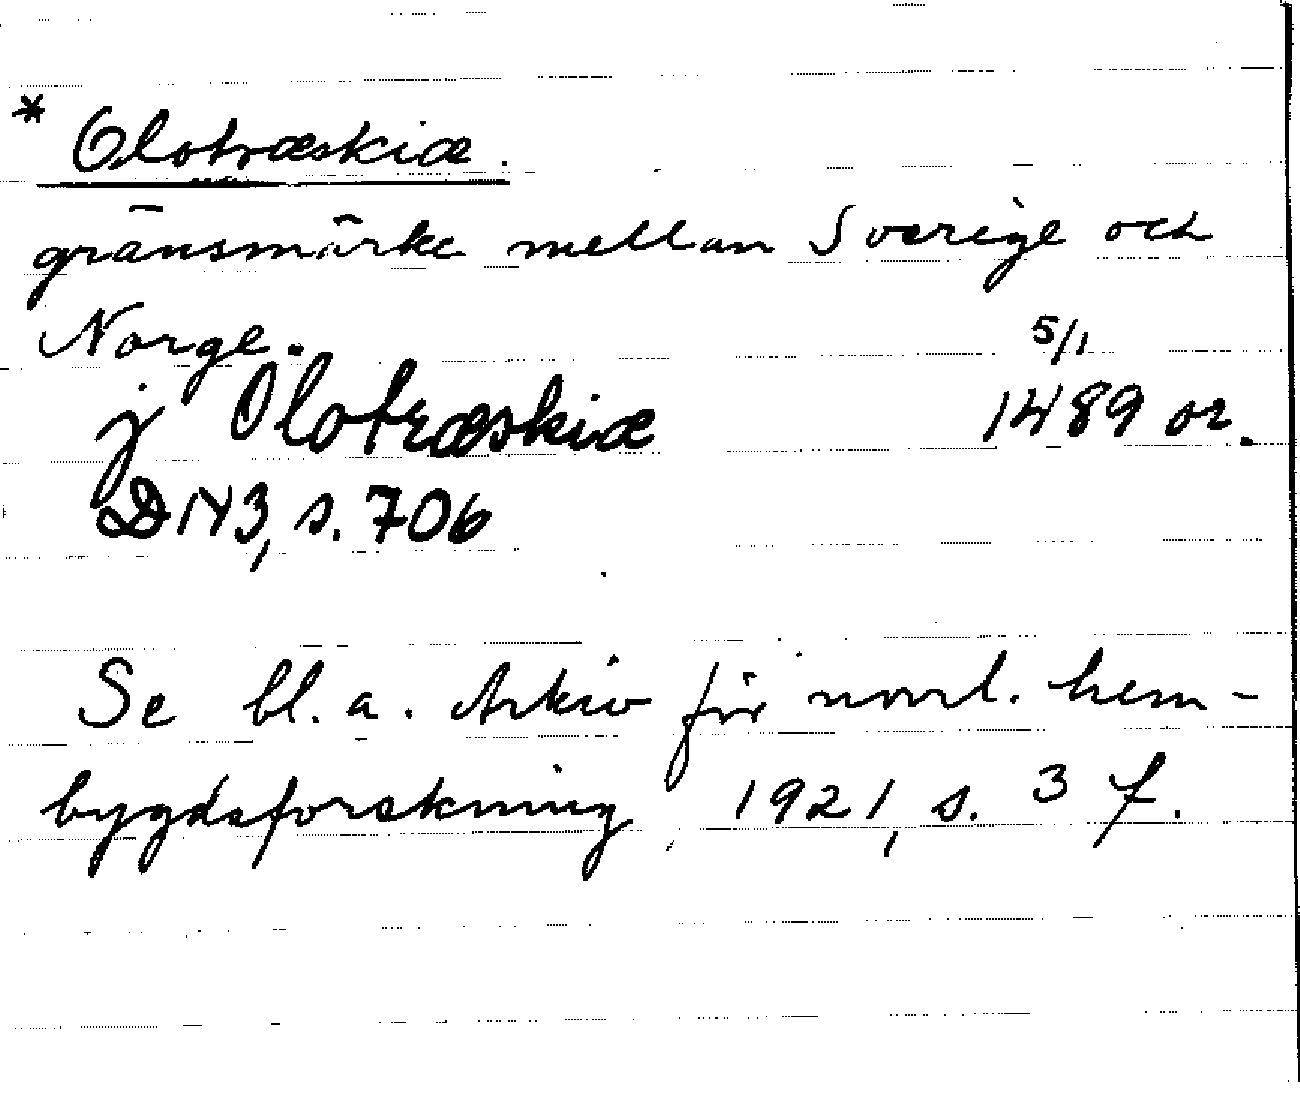 * Olotræskiæ.
gränsmärke mellan Sverige och
Norge.
5/1
j Olotræskiæ 1489 or.
DN 3, s. 706
Se bl. a. Arkiv för norrl. hem-
bygdsforskning 1921, s. 3 f.